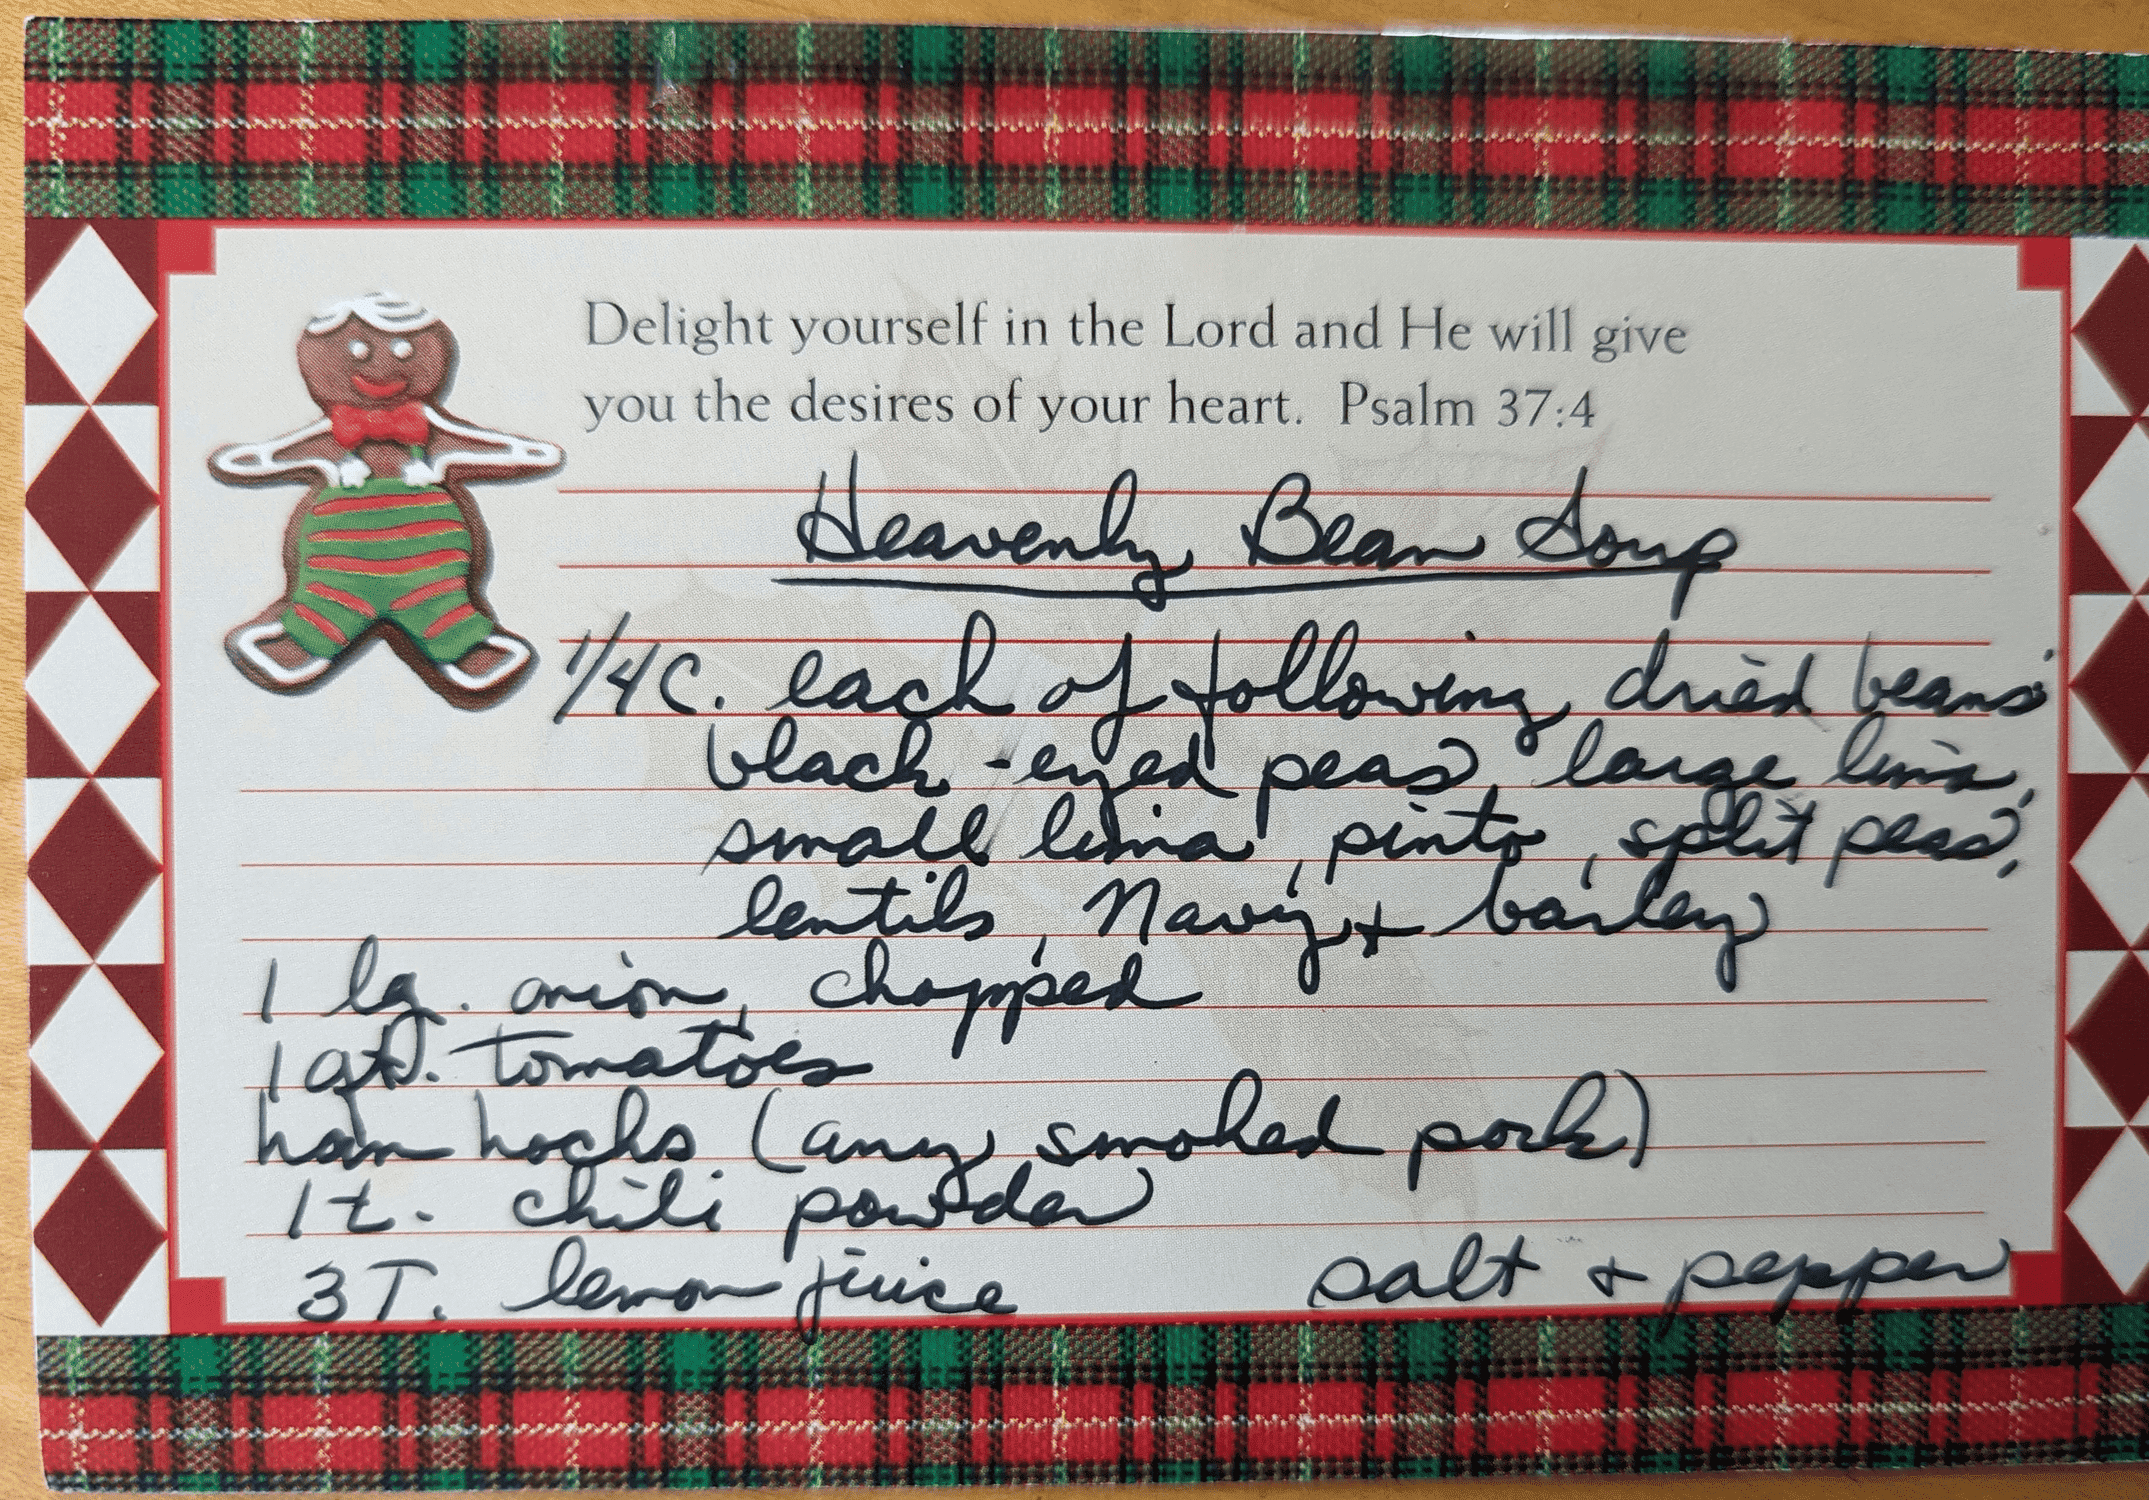 Delight yourself in the Lord and He will give
you the desires of your heart. Psalm 37:4
Heavenly Bean Soup
1/4 C. each of following dried beans:
black-eyed peas, large lima,
small lima, pinto, split peas,
lentils, Navy + barley
1 lg. onion, chopped
1 qt. tomatoes
ham hocks (any smoked pork)
1 t. chili powder
3 T. lemon juice salt + pepper